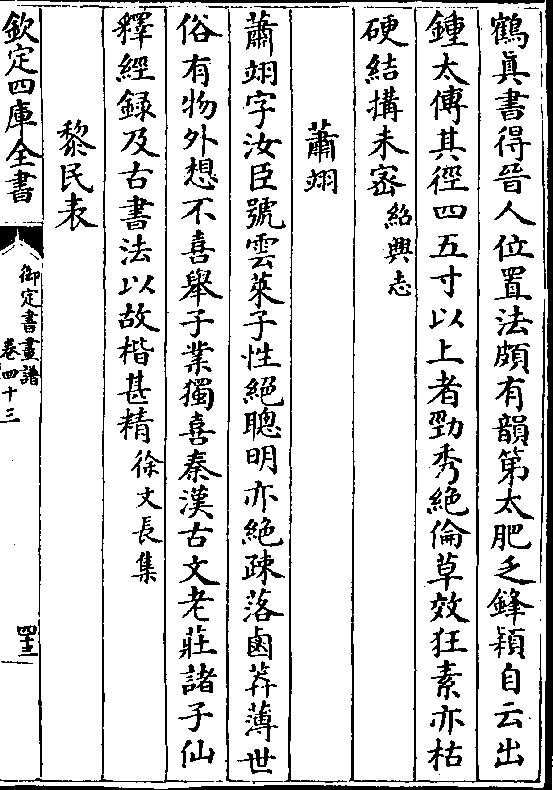 鶴真書得晉人位置法頗有韻第太肥乏鋒穎自云出
鍾太傅其徑四五寸以上者勁秀絶倫草效狂素亦枯
硬結搆未密紹興志
蕭翊
蕭翊字汝臣號雲萊子性絶聰明亦絶疎落鹵莽薄世
俗有物外想不喜舉子業獨喜秦漢古文老莊諸子仙
釋經録及古書法以故楷甚精徐文長集
黎民表
欽定四庫全書
御定書畫譜
卷四十三